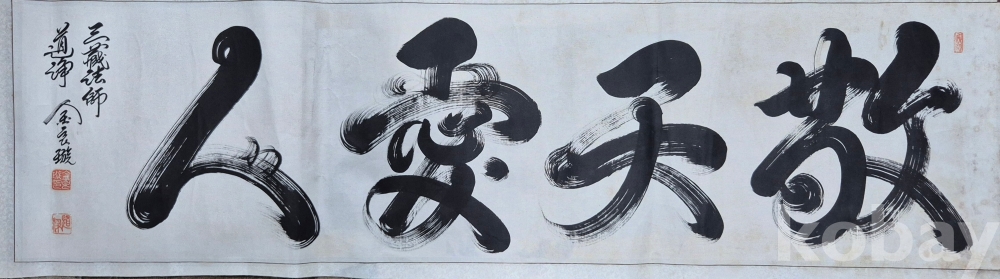 敬天愛人
三藏法師
道諍 金玄璇
kobay